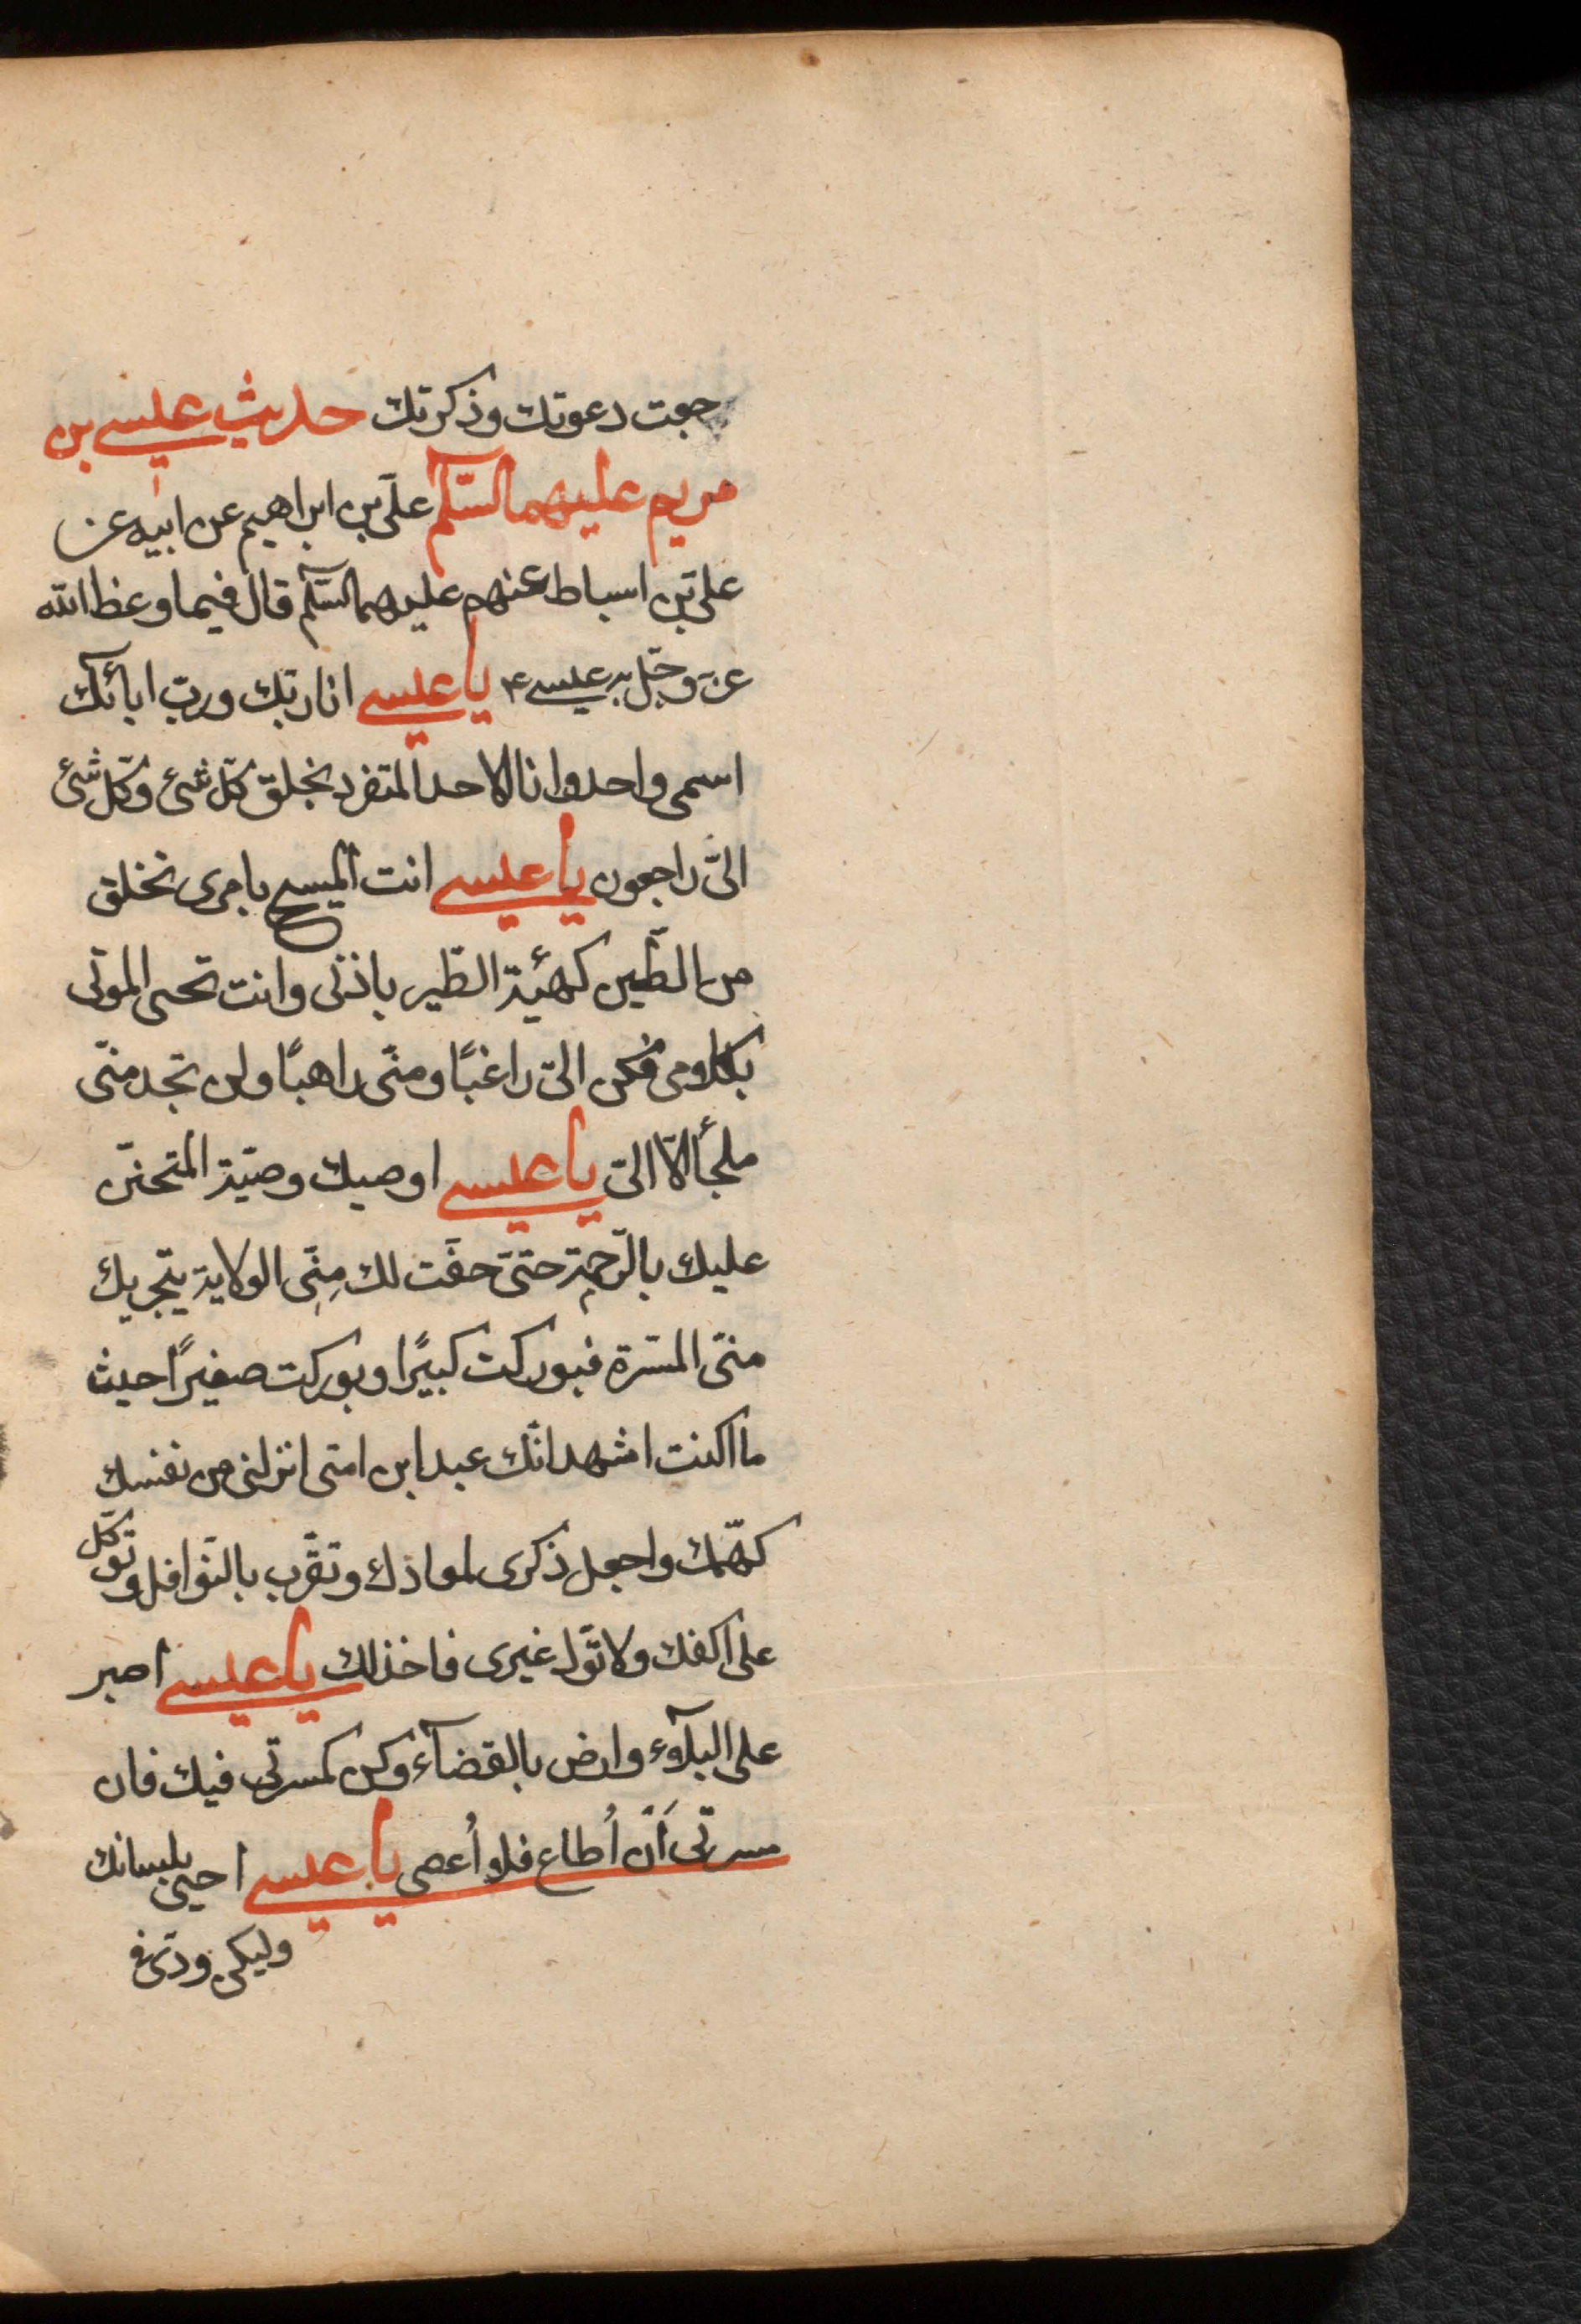 رجعت دعوتك وذكرتك حديث عيسى بن
مريم عليهما السّلم علىّ بن ابراهيم عن ابيه عن
على بن اسباط عنهم عليهم السّلم قال فيما وعظ الله
عزّ وجّل به عيسى ۴ يا عيسى انا ربّك وربّ ابائك
اسمى واحد وانا الاحد المتفرد بخلق كّل شئ وكّل شئ
الىّ راجعون يا عيسى انت المسيح بامرى تخلق
من الطّين كهيئة الطّير باذنى وانت تحيى الموتى
بكلامى فكن الىّ راغبًا ومنّى راهبًا ولن تجد منّى
ملجأ الّا الىّ يا عيسى اوصيك وصيّة المتحنّن
عليك بالرّحمة حتىّ حقّت لك مِنّى الولاية بتحريك
منىّ المسّرة فبوركت كبيرًا وبوركت صغيرًا حيث
ما اكنت اشهد انّك عبد ابن امتى انزلنى من نفسك
كهمّك واجعل ذكرى لمعادك وتقّرب بالنّوافل وتوكّل
على اكفك ولا تّول غيرى فاخذلك يا عيسى اصبر
على البلآء وارض بالقضآء وكن كمسرتى فيك فان
مسرتّى اَن اُطاع فلا اُعصى يا عيسى احيى بلسانك
وليكن ودّى فى